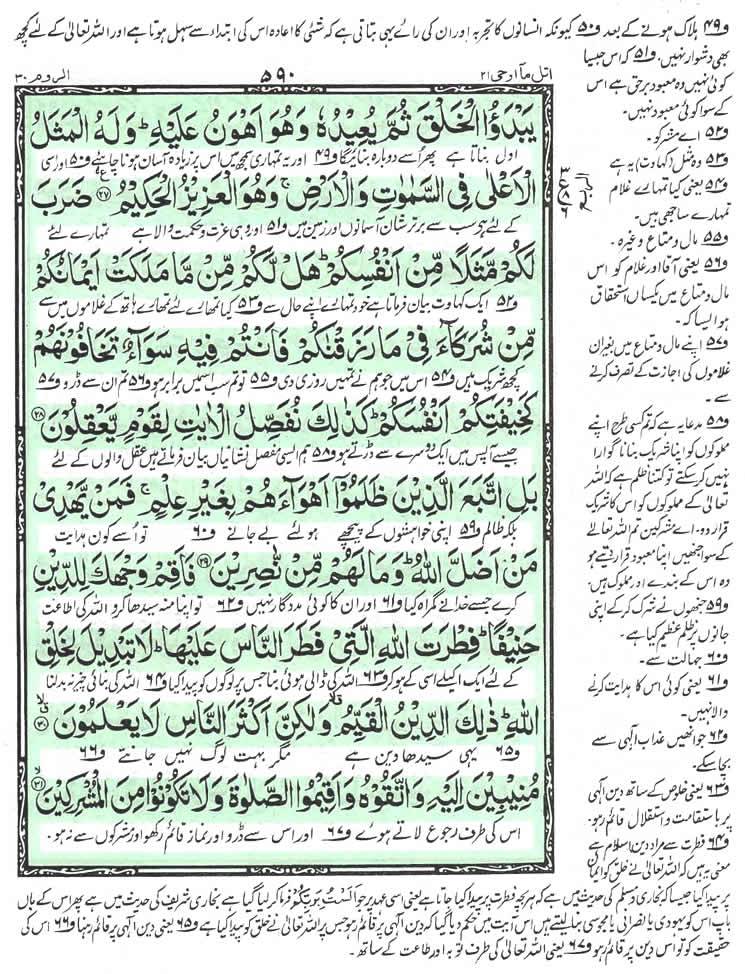 و۴۹ ہلاک ہونے کے بعد و۵۰ کیونکہ انسانوں کا تجربہ اور ان کی رائے یہی بتاتی ہے کہ شئی کا اعادہ اس کی ابتداء سے سہل ہوتا ہے اور اللہ تعالیٰ کے لئے کچھ
بھی دشوار نہیں۔ و۵۱ کہ اس جیسا
کوئی نہیں وہ معبود برحق ہے اس
کے سوا کوئی معبود نہیں۔
و۵۲ اے مشرکو۔
و۵۳ وہ مثل (کہاوت) یہ ہے
و۵۴ یعنی کیا تمہارے غلام
تمہارے ساجھی ہیں۔
و۵۵ مال و متاع وغیرہ۔
و۵۶ یعنی آقا اور غلام کو اس
مال و متاع میں یکساں استحقاق
ہو ایسا کہ۔
و۵۷ اپنے مال و متاع میں بغیر ان
غلاموں کی اجازت کے تصرف کرنے
سے۔
و۵۸ مدعا یہ ہے کہ تم کسی طرح اپنے
مملوکوں کو اپنا شریک بنانا گوارا
نہیں کرسکتے تو کتنا ظلم ہے کہ اللہ
تعالیٰ کے مملوکوں کو اس کا شریک
قرار دو۔ اے مشرکین تم اللہ تعالے
کے سوا جنھیں اپنا معبود قرار دیتے ہو
وہ اس کے بندے اور مملوک ہیں۔
و۵۹ جنھوں نے شرک کرکے اپنی
جانوں پر ظلم عظیم کیا ہے۔
و۶۰ جہالت سے۔
و۶۱ یعنی کوئی اس کا ہدایت کرنے
والا نہیں۔
و۶۲ جو انھیں عذاب الٰہی سے
بچا سکے۔
و۶۳ یعنی خلوص کے ساتھ دین الٰہی
پر باستقامت و استقلال قائم رہو۔
و۶۴ فطرت سے مراد دین اسلام ہے
معنی یہ ہیں کہ اللہ تعالیٰ نے خلق کو ایمان
اتل ما اوحی ۲۱
۵۹۰
الروم ۳۰
يَبْدَؤُا الْخَلْقَ ثُمَّ يُعِيْدُهٗ وَهُوَ اَهْوَنُ عَلَيْهِ ؕ وَلَهُ الْمَثَلُ
اول بناتا ہے پھر اُسے دوبارہ بنائیگا و۴۹ اور یہ تمہاری سمجھ میں اس پر زیادہ آسان ہونا چاہئے و۵۰ اور اسی
الْاَعْلٰى فِى السَّمٰوٰتِ وَالْاَرْضِ ۚ وَهُوَ الْعَزِيْزُ الْحَكِيْمُ ﴿۲۷﴾ ضَرَبَ
کے لئے ہے سب سے برتر شان آسمانوں اور زمین میں و۵۱ اور وہی عزت و حکمت والا ہے تمہارے لئے
لَكُمْ مَّثَلًا مِّنْ اَنْفُسِكُمْ ؕ هَلْ لَّكُمْ مِّنْ مَّا مَلَكَتْ اَيْمَانُكُمْ
و۵۲ ایک کہاوت بیان فرماتا ہے خود تمہارے اپنے حال سے و۵۳ کیا تمھارے لئے تمھارے ہاتھ کے غلاموں میں سے
مِّنْ شُرَكَآءَ فِىْ مَا رَزَقْنٰكُمْ فَاَنْتُمْ فِيْهِ سَوَآءٌ تَخَافُوْنَهُمْ
کچھ شریک ہیں و۵۴ اس میں جو ہم نے تمہیں روزی دی و۵۵ تو تم سب اسمیں برابر ہو و۵۶ تم ان سے ڈرو و۵۷
كَخِيْفَتِكُمْ اَنْفُسَكُمْ ؕ كَذٰلِكَ نُفَصِّلُ الْاٰيٰتِ لِقَوْمٍ يَّعْقِلُوْنَ ﴿۲۸﴾
جیسے آپس میں ایک دوسرے سے ڈرتے ہو و۵۸ ہم ایسی مفصل نشانیاں بیان فرماتے ہیں عقل والوں کے لئے
بَلِ اتَّبَعَ الَّذِيْنَ ظَلَمُوْۤا اَهْوَآءَهُمْ بِغَيْرِ عِلْمٍ ۚ فَمَنْ يَّهْدِىْ
بلکہ ظالم و۵۹ اپنی خواہشوں کے پیچھے ہولئے بے جانے و۶۰ تو اُسے کون ہدایت
مَنْ اَضَلَّ اللّٰهُ ؕ وَمَا لَهُمْ مِّنْ نّٰصِرِيْنَ ﴿۲۹﴾ فَاَقِمْ وَجْهَكَ لِلدِّيْنِ
کرے جسے خدا نے گمراہ کیا و۶۱ اور ان کا کوئی مددگار نہیں و۶۲ تو اپنا منہ سیدھا کرو اللہ کی اطاعت
حَنِيْفًا ؕ فِطْرَتَ اللّٰهِ الَّتِىْ فَطَرَ النَّاسَ عَلَيْهَا ؕ لَا تَبْدِيْلَ لِخَلْقِ
کے لئے ایک اکیلے اسی کے ہوکر و۶۳ اللہ کی ڈالی ہوئی بنا جس پر لوگوں کو پیدا کیا و۶۴ اللہ کی بنائی چیز نہ بدلنا
اللّٰهِ ؕ ذٰلِكَ الدِّيْنُ الْقَيِّمُ ۙ وَلٰكِنَّ اَكْثَرَ النَّاسِ لَا يَعْلَمُوْنَ ﴿۳۰﴾
و۶۵ یہی سیدھا دین ہے مگر بہت لوگ نہیں جانتے و۶۶
مُنِيْبِيْنَ اِلَيْهِ وَاتَّقُوْهُ وَاَقِيْمُوا الصَّلٰوةَ وَلَا تَكُوْنُوْا مِنَ الْمُشْرِكِيْنَ ﴿۳۱﴾
اس کی طرف رجوع لاتے ہوئے و۶۷ اور اس سے ڈرو اور نماز قائم رکھو اور مشرکوں سے نہ ہو۔
پر پیدا کیا جیسا کہ بخاری و مسلم کی حدیث میں ہے کہ ہر بچہ فطرت پر پیدا کیا جاتا ہے یعنی اسی عہد پر جو اَلَسْتُ بِرَبِّكُمْ فرما کر لیا گیا ہے بخاری شریف کی حدیث میں ہے پھر اس کے ماں
باپ اس کو یہودی یا نصرانی یا مجوسی بنا لیتے ہیں اس آیت میں حکم دیا گیا کہ دین الٰہی پر قائم رہو جس پر اللہ تعالیٰ نے خلق کو پیدا کیا ہے و۶۵ یعنی دین الٰہی پر قائم رہنا و۶۶ اس کی
حقیقت کو تو اس دین پر قائم رہو و۶۷ یعنی اللہ تعالیٰ کی طرف توبہ اور طاعت کے ساتھ۔